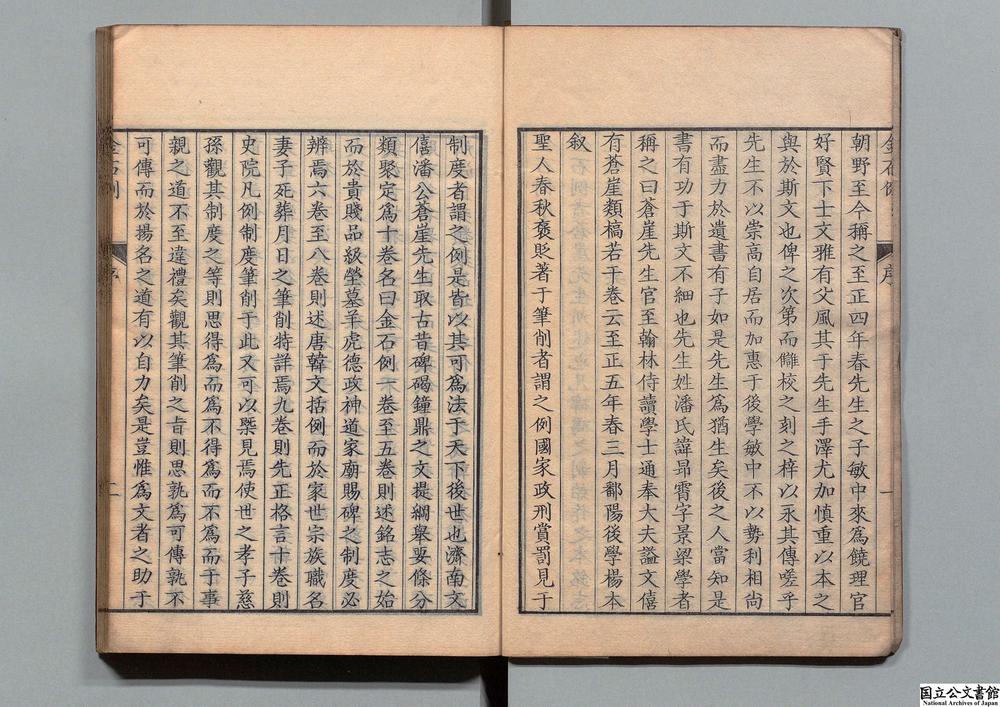 朝野至今稱之至正四年春先生之子敏中來爲饒理官
好賢下士文雅有父風其于先生手澤尤加慎重以本之
與於斯文也俾之次第而讎校之刻之梓以永其傳嗟乎
先生不以崇高自居而加惠于後學敏中不以勢利相尚
而盡力於遺書有子如是先生爲猶生矣後之人當知是
書有功于斯文不細也先生姓潘氏諱昻霄字景梁學者
稱之曰蒼崖先生官至翰林侍讀學士通奉大夫謚文僖
有蒼崖類槁若干卷云至正五年春三月鄱陽後學楊本
叙
聖人春秋褒貶著于筆削者謂之例國家政刑賞罰見于
序
一
制度者謂之例是皆以其可爲法于天下後世也濟南文
僖潘公蒼崖先生取古昔碑碣鐘鼎之文提綱舉要條分
類聚定爲十卷名曰金石例一卷至五卷則述銘志之始
而於貴賤品級塋墓羊虎德政神道家廟賜碑之制度必
辨焉六卷至八卷則述唐韓文括例而於家世宗族職名
妻子死葬月日之筆削特詳焉九卷則先正格言十卷則
史院凡例制度筆削于此又可以槩見焉使世之孝子慈
孫觀其制度之等則思得爲而爲不得爲而不爲而于事
親之道不至違禮矣觀其筆削之旨則思孰爲可傳孰不
可傳而於揚名之道有以自力矣是豈惟爲文者之助于
金石例
序
二
国立公文書館
National Archives of Japan